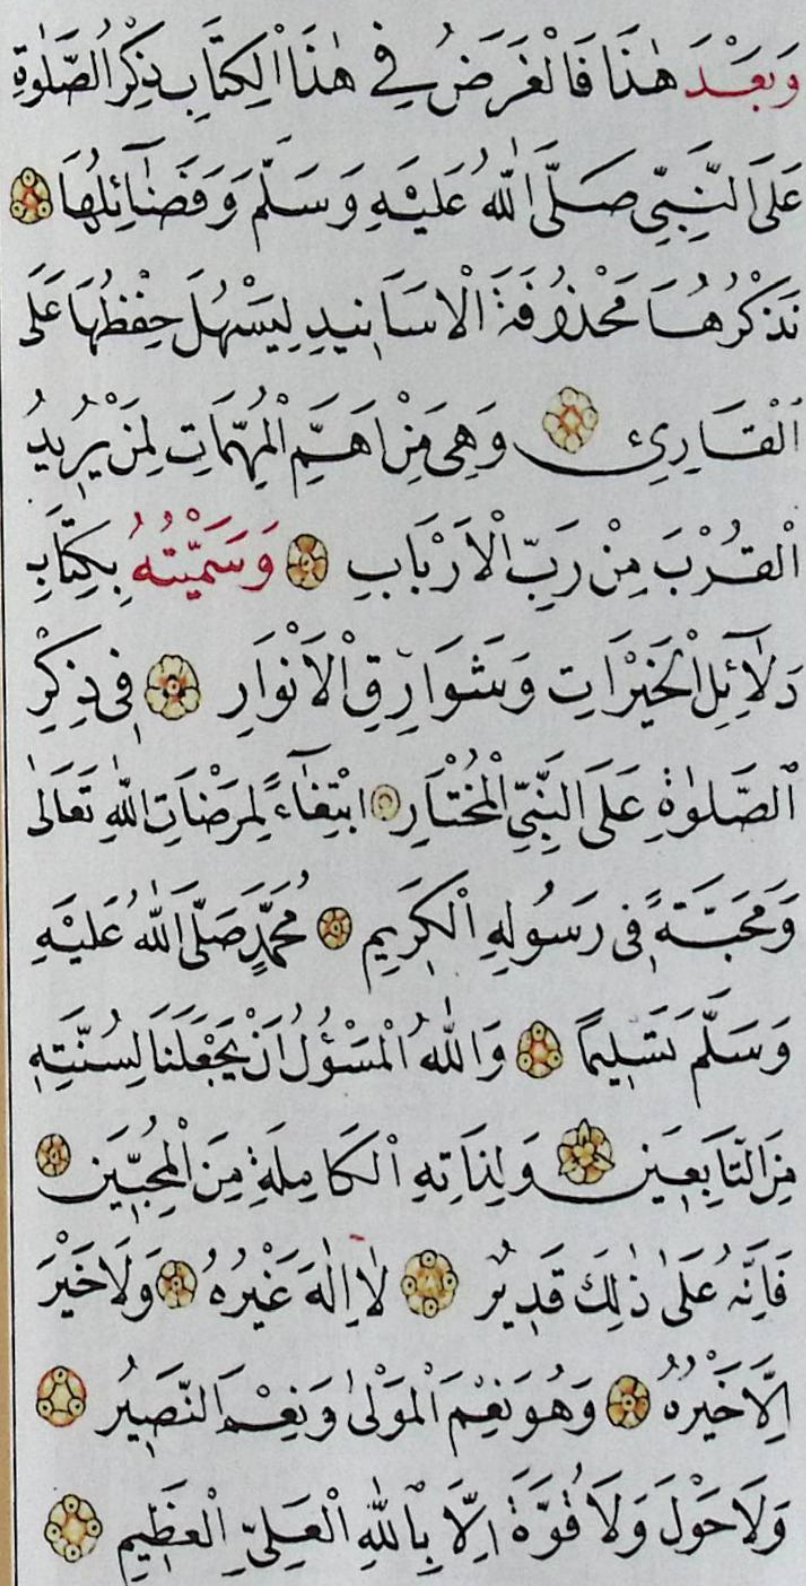 وَبَعْدَ هٰذَا فَالْغَرَضُ فِي هٰذَا الْكِتَابِ ذِكْرُ الصَّلٰوةِ
عَلَى النَّبِيِّ صَلَّى اللّٰهُ عَلَيْهِ وَسَلَّمَ وَفَضَآئِلُهَا
نَذْكُرُهَا مَحْذُوفَةَ الْاَسَانِيدِ لِيَسْهُلَ حِفْظُهَا عَلَى
الْقَارِئِ وَهِيَ مِنْ اَهَمِّ الْمُهِمَّاتِ لِمَنْ يُرِيدُ
الْقُرْبَ مِنْ رَبِّ الْاَرْبَابِ وَسَمَّيْتُهُ بِكِتَابِ
دَلَآئِلِ الْخَيْرَاتِ وَشَوَارِقِ الْاَنْوَارِ فِي ذِكْرِ
الصَّلٰوةِ عَلَى النَّبِيِّ الْمُخْتَارِ ابْتِغَآءً لِمَرْضَاتِ اللّٰهِ تَعَالٰى
وَمَحَبَّةً فِي رَسُولِهِ الْكَرِيمِ مُحَمَّدٍ صَلَّى اللّٰهُ عَلَيْهِ
وَسَلَّمَ تَسْلِيمًا وَاللّٰهُ الْمَسْؤُلُ اَنْ يَجْعَلَنَا لِسُنَّتِهِ
مِنَ التَّابِعِينَ وَلِذَاتِهِ الْكَامِلَةِ مِنَ الْمُحِبِّينَ
فَاِنَّهُ عَلٰى ذٰلِكَ قَدِيرٌ لَا اِلٰهَ غَيْرُهُ وَلَا خَيْرَ
اِلَّا خَيْرُهُ وَهُوَ نِعْمَ الْمَوْلٰى وَنِعْمَ النَّصِيرُ
وَلَا حَوْلَ وَلَا قُوَّةَ اِلَّا بِاللّٰهِ الْعَلِيِّ الْعَظِيمِ